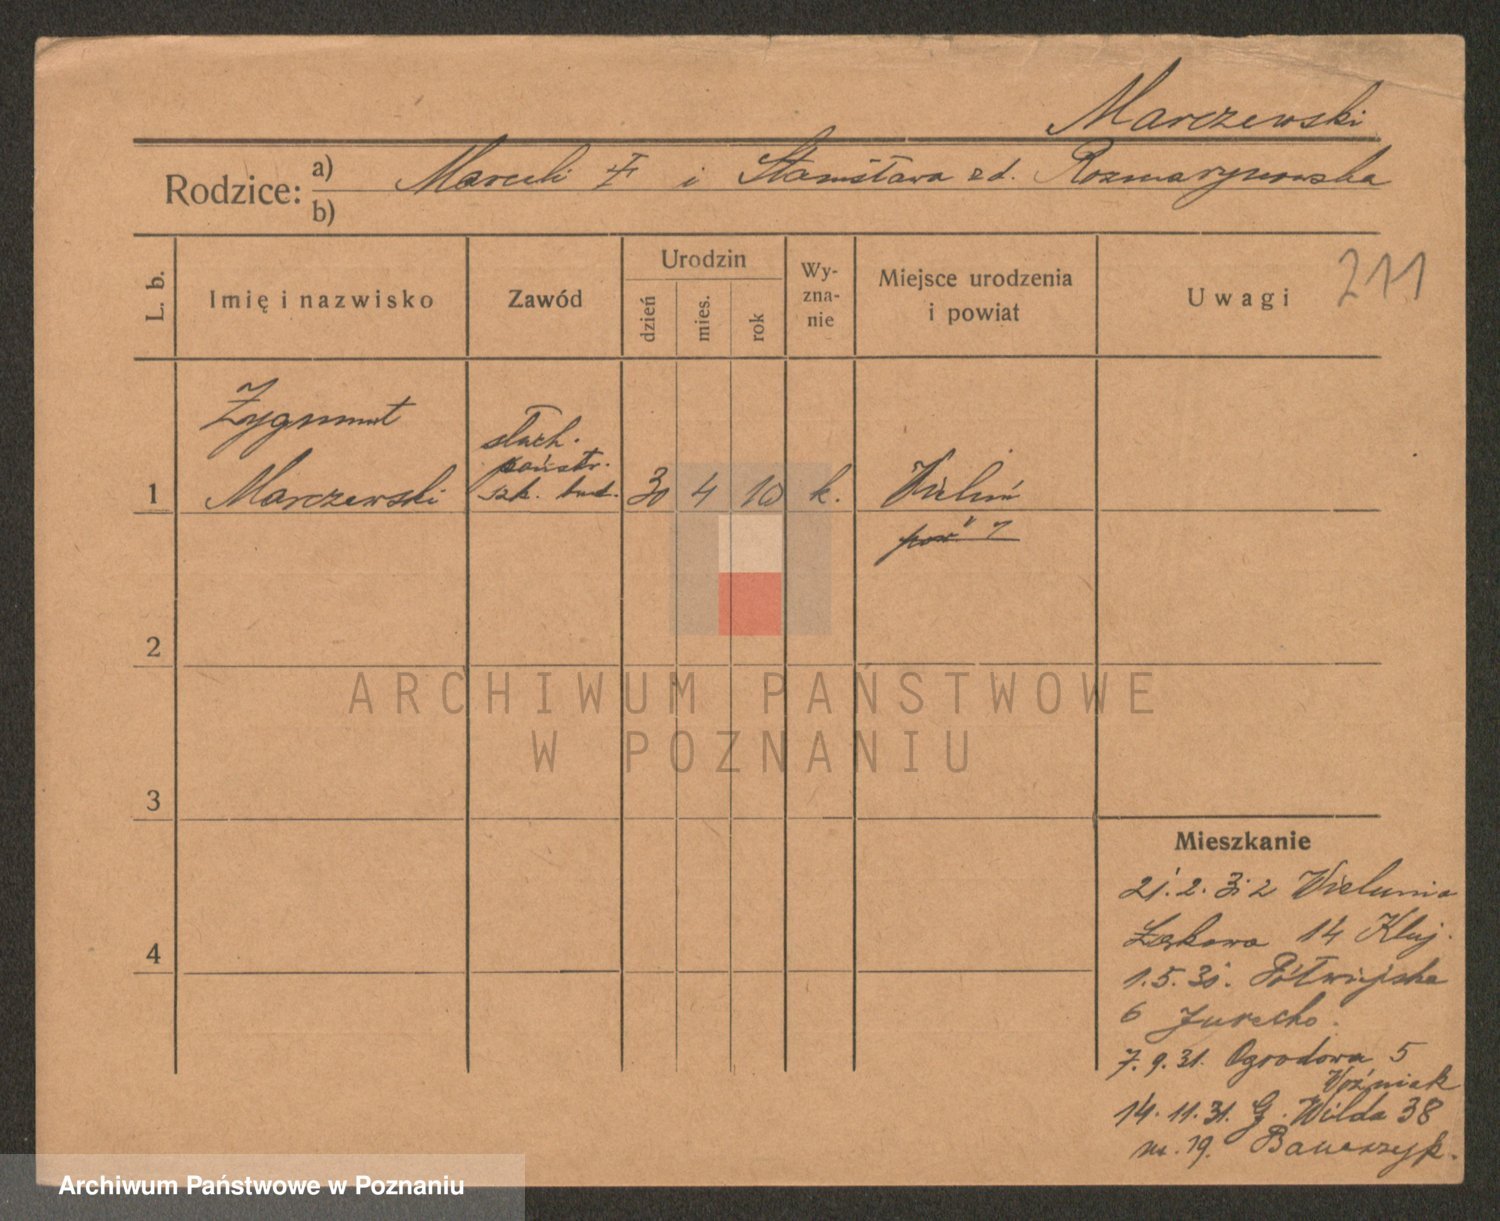 Marczewski
Rodzice: a) Marceli i Stanisława zd. Rozmarynowska
b)
L. b.
Imię i nazwisko
Zawód
Urodzin
dzień
mies.
rok
Wy-
zna-
nie
Miejsce urodzenia
i powiat
Uwagi
211
1
Zygmunt
Marczewski
słuch.
państw.
szk. bud.
30
4
10
k.
Wieluń
pow. "
2
3
4
Mieszkanie
Wielunia
Łąkowa 14 Kluj.
1.5.31. Półwiejska
6 Jurecko.
7.9.31. Ogrodowa 5
Woźniak
14.11.31. G. Wilda 38
m. 19.
ARCHIWUM PAŃSTWOWE
W POZNANIU
Archiwum Państwowe w Poznaniu